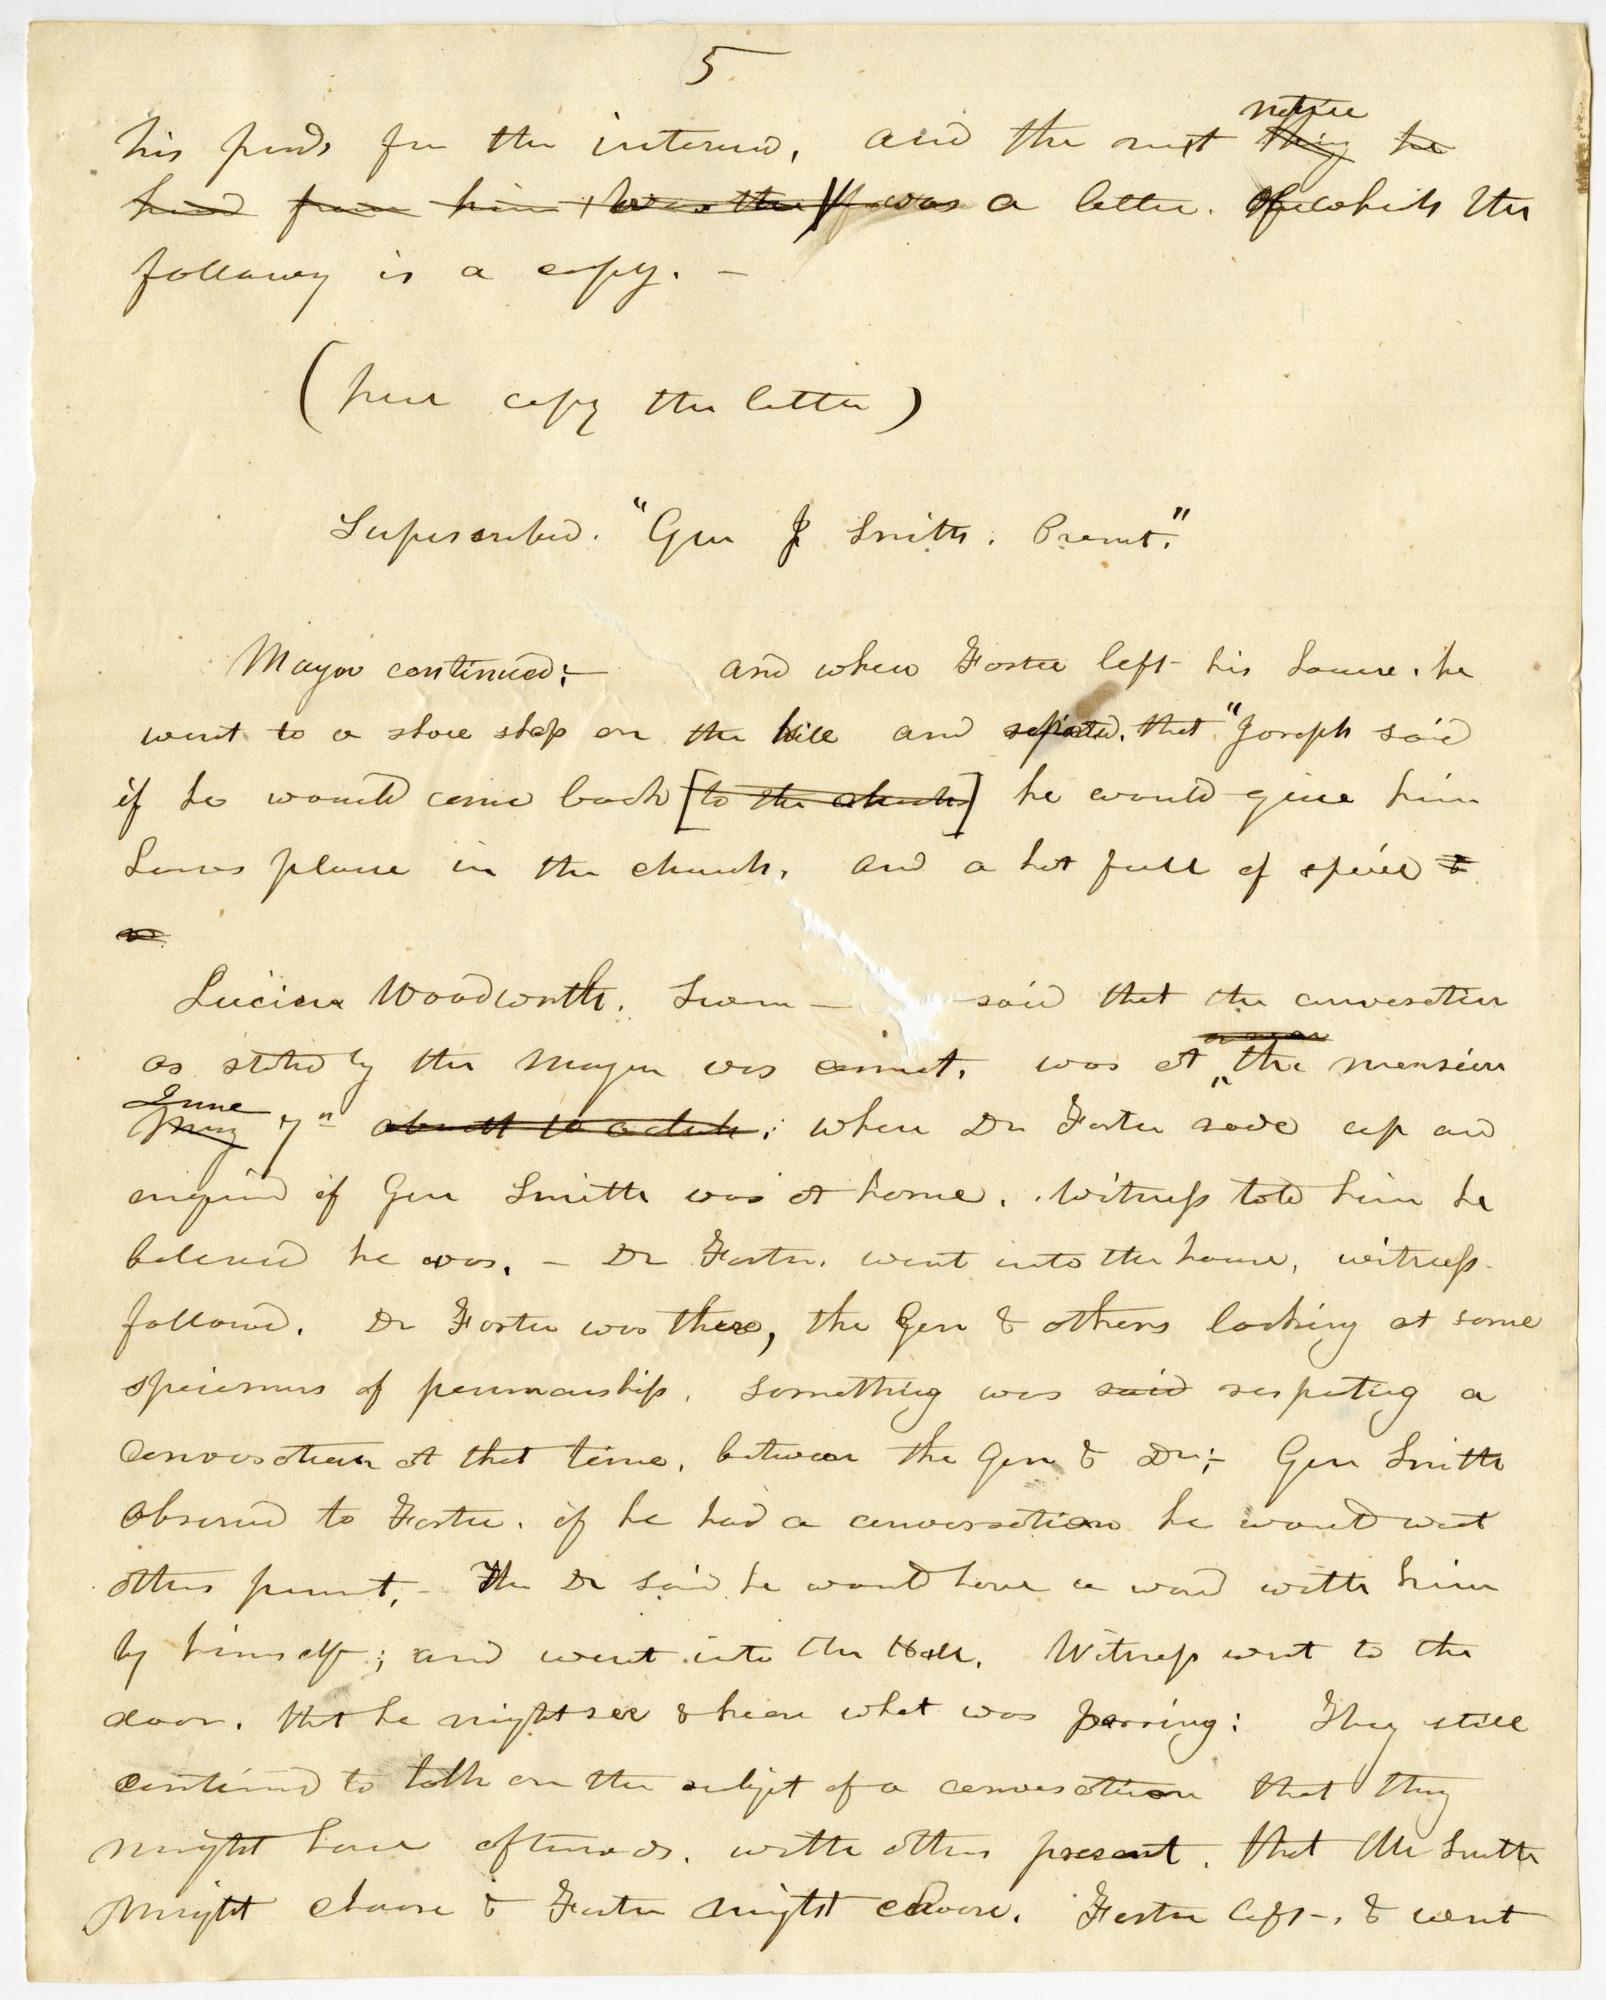 5
his friends for the interview, and the next notice thing he
heard from him, was the was a letter. Of which the
following is a copy. —
(here copy the letter)
Superscribed. "Gen J Smith. Present."
Mayor continued;— and when Foster left his house. he
went to a shoe shop on the hill and reported. that "Joseph said
if he would come back [to the church] he would give him
Laws place in the church, and a hat full of specie to
Lucien Woodworth. Sworn — said that the conversation
as stated by the Mayor was correct, was at the mansion
June May 7th about 10 o clock; when Dr Foster rode up and
enquired if Gen Smith was at home. Witness told him he
believed he was. — Dr Foster. went into the house, witness
followed. Dr Foster was there, the Gen & others looking at some
specimens of penmanship. something was said respecting a
conversation at that time, between the Gen & Dr;— Gen Smith
observed to Foster. if he had a conversation he would want
others present,— The Dr said he would have a word with him
by himself; and went into the Hall. Witness went to the
door. that he might see & hear what was passing: They still
continued to talk on the subject of a conversation that they
might have afterwards. with others present. that Mr Smith
might choose & Foster might choose. Foster left—, & went